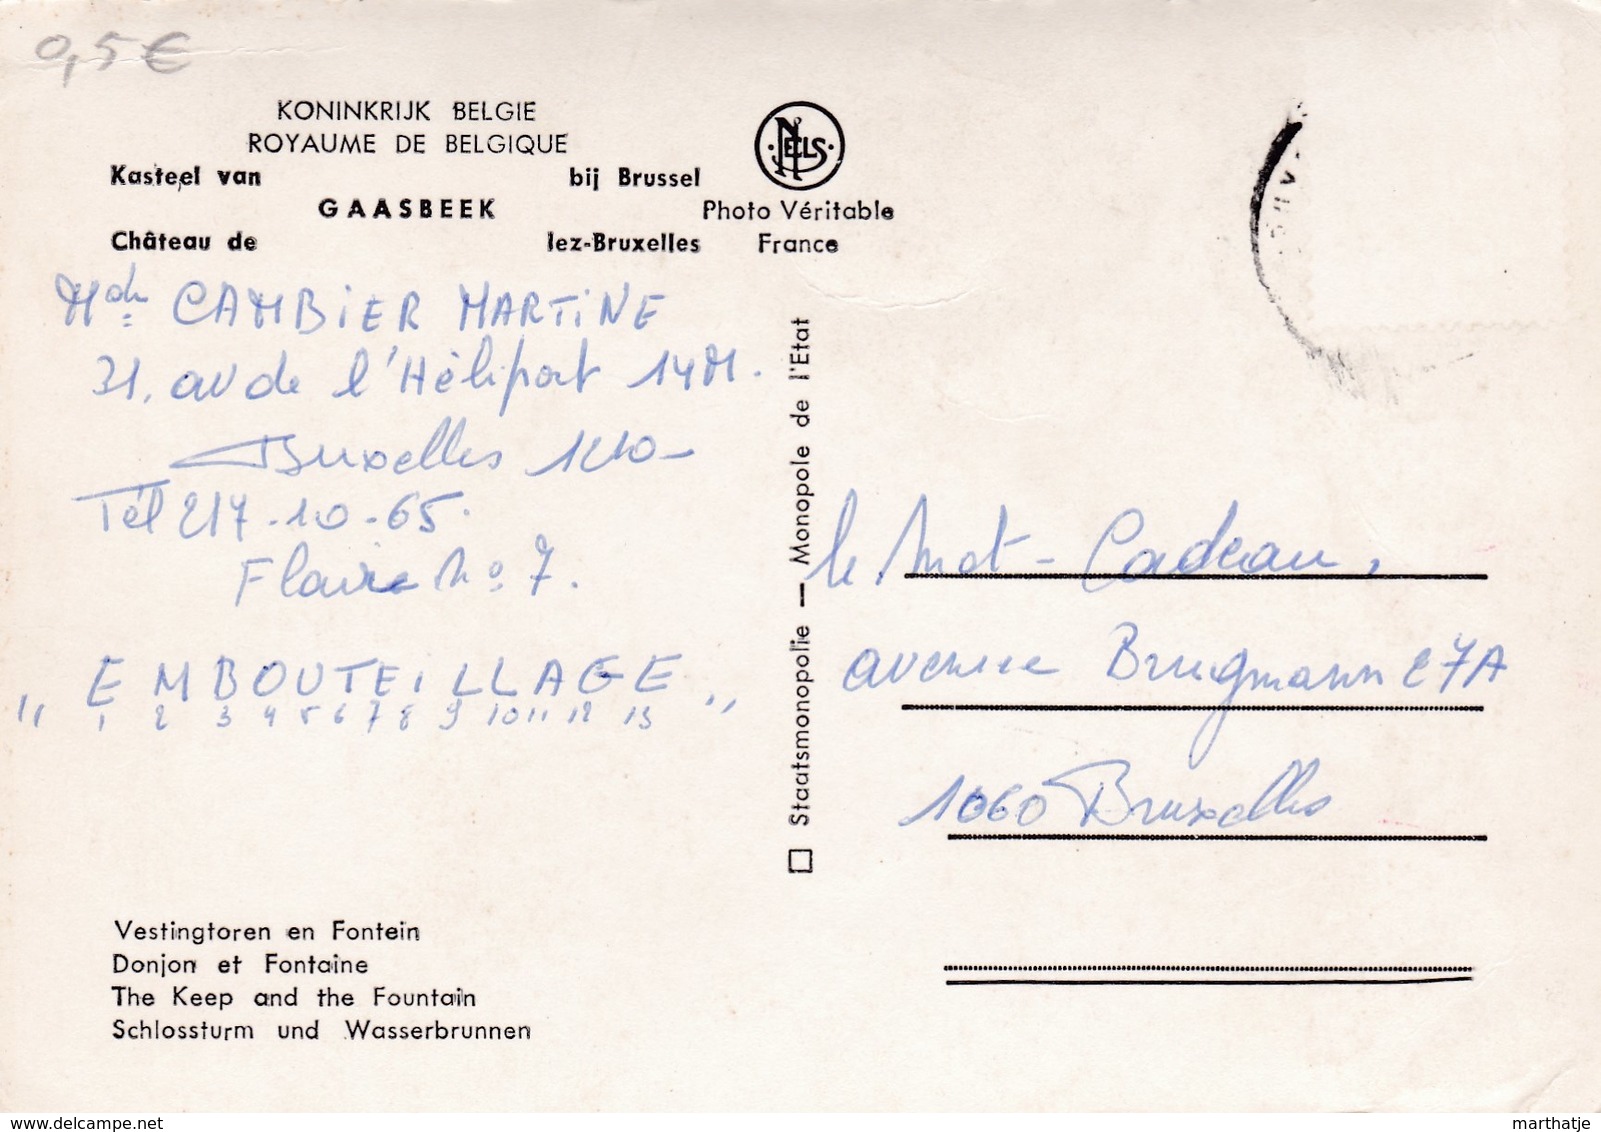 0,5€
KONINKRIJK BELGIE
ROYAUME DE BELGIQUE
Kasteel van bij Brussel
GAASBEEK
Château de lez-Bruxelles
NELS
Photo Véritable
France
CAMBiER MARTiNE
31, av de l'Héliport 14M.
Bruxelles 1210
Tél 217.10.65.
No 7.
" EMBOUTEiLLAGE "
1 2 3 4 5 6 7 8 9 10 11 12 13
Vestingtoren en Fontein
Donjon et Fontaine
The Keep and the Fountain
Schlossturm und Wasserbrunnen
Staatsmonopolie — Monopole de l'Etat
le Mot-Cadeau,
avenue Brugmann 27A
1060 Bruxelles
www.delcampe.net
marthatje